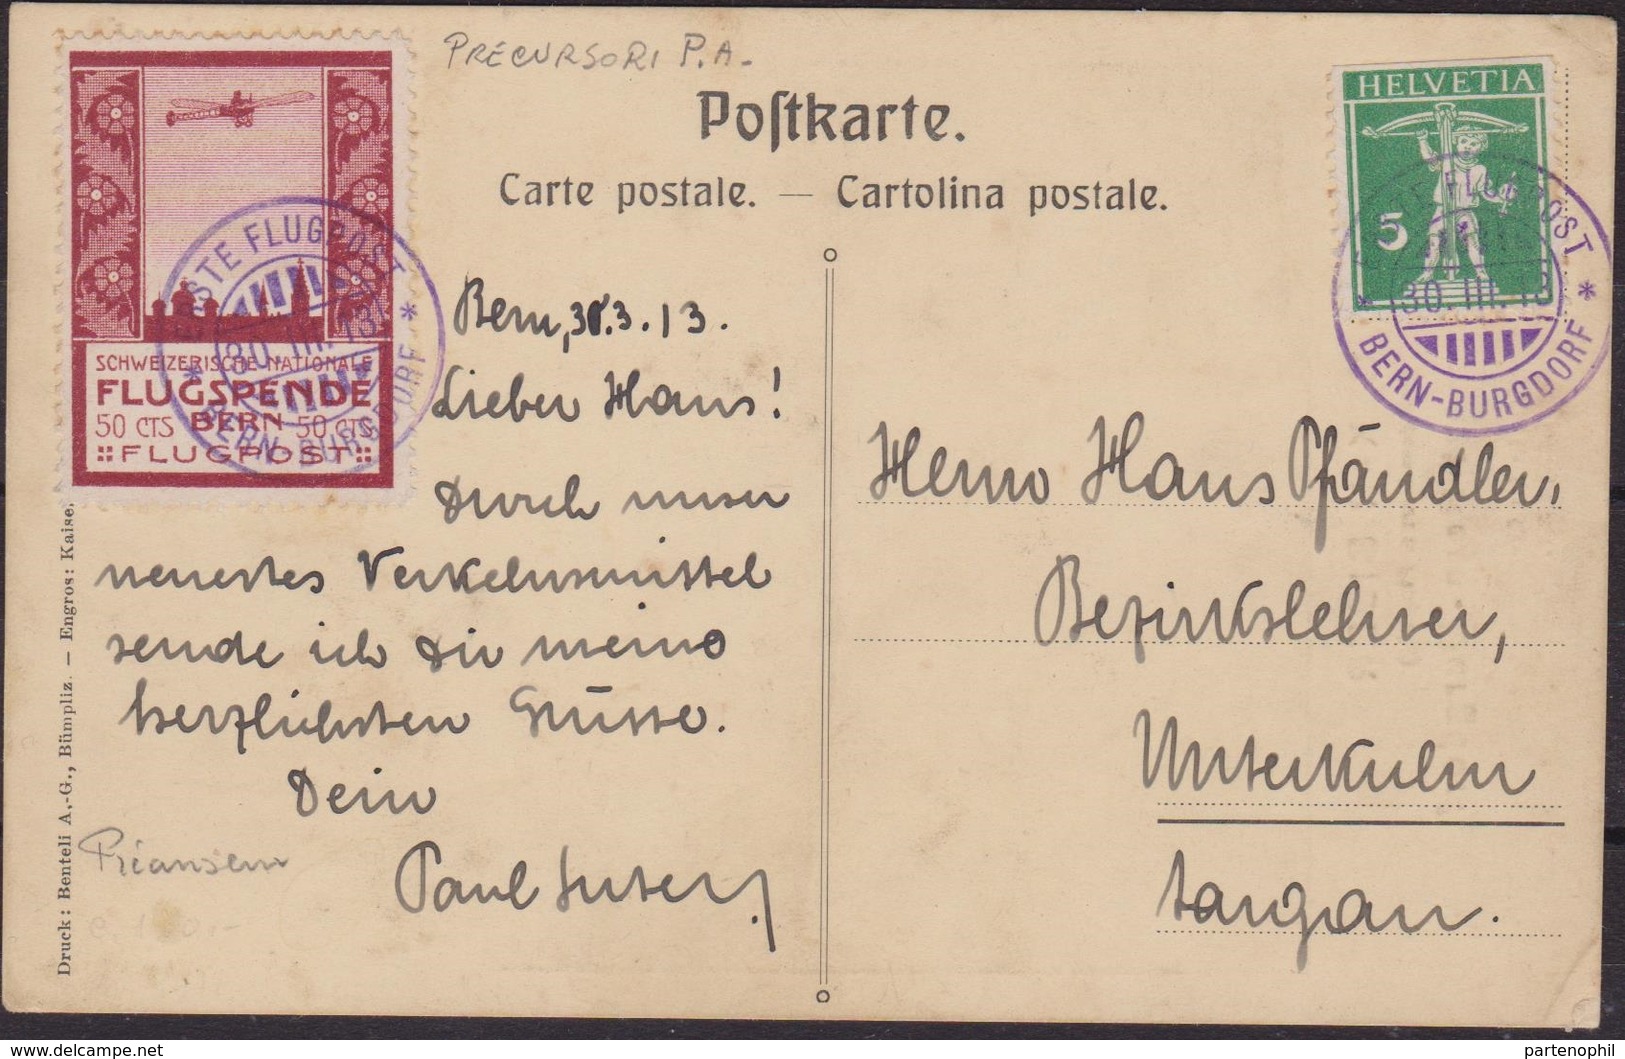 PRECURSORI P.A.
Postkarte.
Carte postale. — Cartolina postale.
SCHWEIZERISCHE NATIONALE
FLUGSPENDE
50 CTS BERN 50 CTS
FLUGPOST
ERSTE FLUGPOST
30.III.13
BERN-BURGDORF
HELVETIA
5
ERSTE FLUGPOST
30.III.13
BERN-BURGDORF
Bern, 30.3.13.
Lieber Hans!
Durch unser
neuestes Verkehrsmittel
sende ich Dir meine
herzlichsten Grüsse.
Dein
Paul Suter
Herrn Hans Pfändler,
Bezirkslehrer,
Unterkulm
Aargau.
Druck: Benteli A.-G., Bümpliz. — Engros: Kaiser
partenophil
© www.delcampe.net